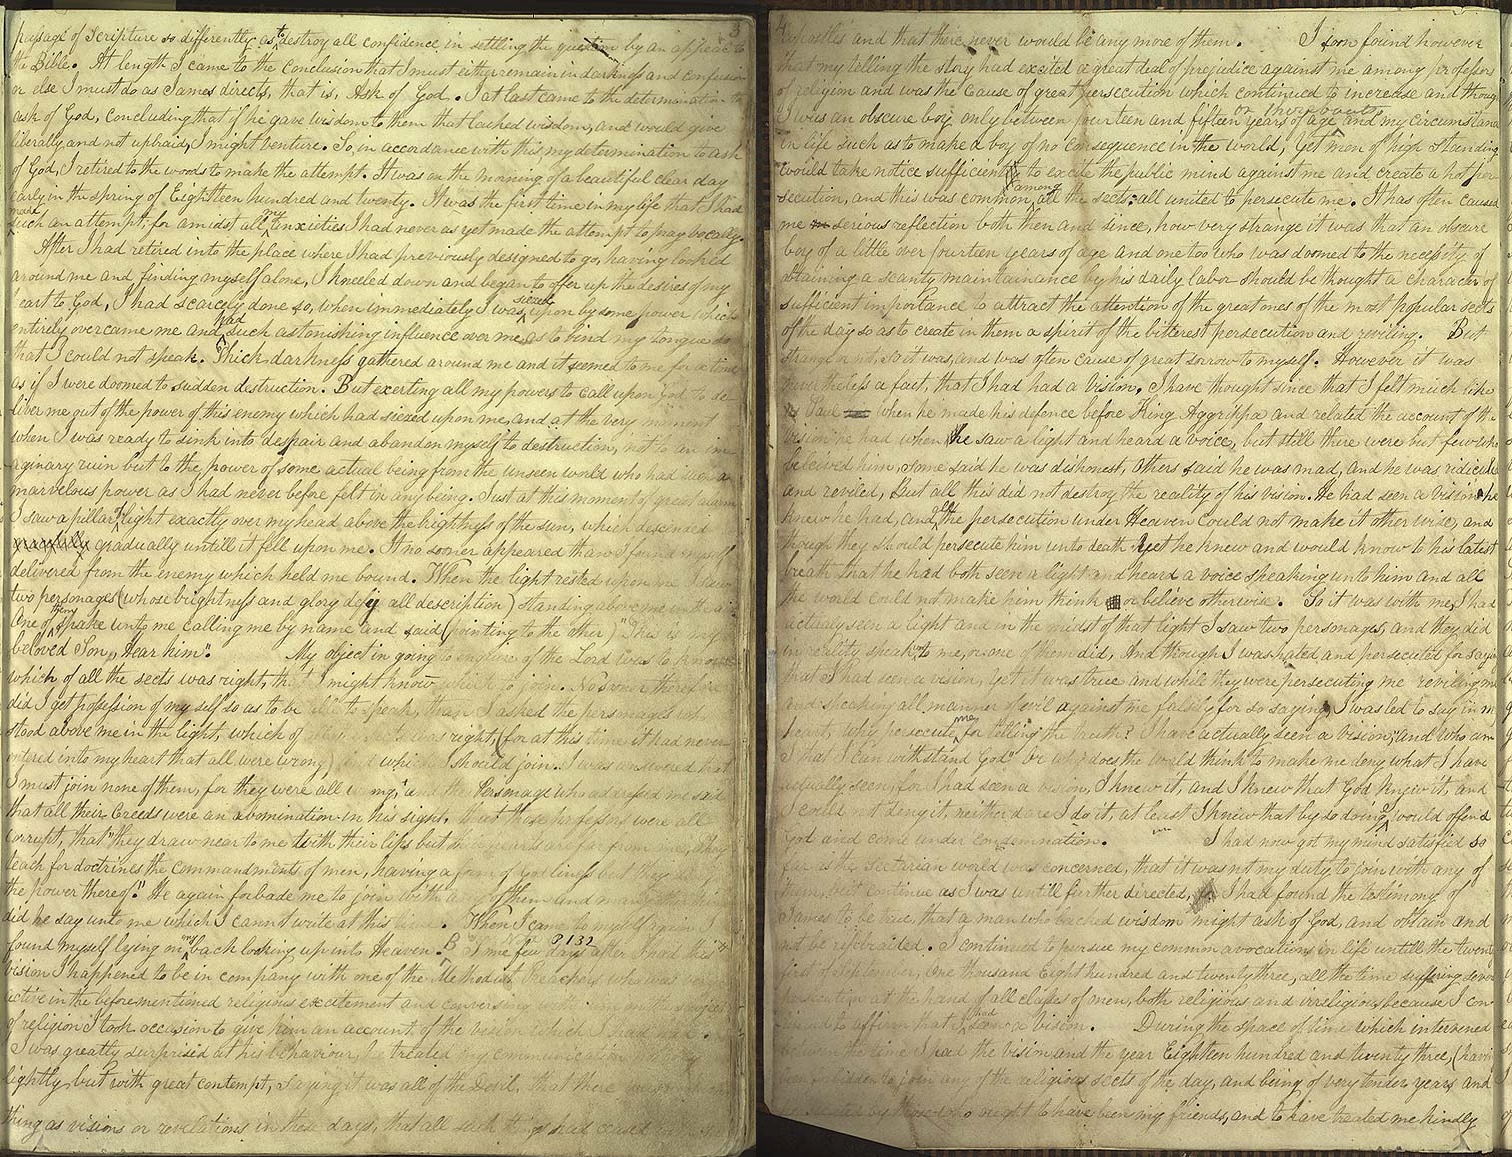 3
passage of Scripture so differently as to destroy all confidence in settling the question by an appeal to
the Bible. At length I came to the conclusion that I must either remain in darkness and confusion
or else I must do as James directs, that is, Ask of God. I at last came to the determination to
ask of God, concluding that if he gave wisdom to them that lacked wisdom, and would give
liberally and not upbraid, I might venture. So in accordance with this my determination to ask
of God, I retired to the woods to make the attempt. It was on the morning of a beautiful clear day
early in the spring of Eighteen hundred and twenty. It was the first time in my life that I had
made such an attempt, for amidst all my anxieties I had never as yet made the attempt to pray vocally.
After I had retired into the place where I had previously designed to go, having looked
around me and finding myself alone, I kneeled down and began to offer up the desires of my
heart to God, I had scarcely done so, when immediately I was siezed upon by some power which
entirely overcame me and had such astonishing influence over me as to bind my tongue so
that I could not speak. Thick darkness gathered around me and it seemed to me for a time
as if I were doomed to sudden destruction. But exerting all my powers to call upon God to de-
liver me out of the power of this enemy which had siezed upon me, and at the very moment
when I was ready to sink into despair and abandon myself to destruction, not to an im-
aginary ruin but to the power of some actual being from the unseen world who had such a
marvelous power as I had never before felt in any being. Just at this moment of great alarm
I saw a pillar of light exactly over my head above the brightness of the sun, which descended
gradually untill it fell upon me. It no sooner appeared than I found myself
delivered from the enemy which held me bound. When the light rested upon me I saw
two personages (whose brightness and glory defy all description) standing above me in the air.
One of them spake unto me calling me by name and said (pointing to the other) "This is my
beloved Son, Hear him." My object in going to enquire of the Lord was to know
which of all the sects was right, that I might know which to join. No sooner therefore
did I get possession of myself so as to be able to speak, than I asked the personages who
stood above me in the light, which of all the sects was right, (for at this time it had never
entered into my heart that all were wrong) and which I should join. I was answered that
I must join none of them, for they were all wrong, and the Personage who addressed me said
that all their Creeds were an abomination in his sight, that those professors were all
corrupt, that "they draw near to me with their lips but their hearts are far from me, They
teach for doctrines the commandments of men, having a form of Godliness but they deny
the power thereof." He again forbade me to join with any of them and many other things
did he say unto me which I cannot write at this time. When I came to myself again I
found myself lying on my back looking up into Heaven. B P 132 Some few days after I had this
vision I happened to be in company with one of the Methodist Preachers who was very
active in the before mentioned religious excitement and conversing with him on the subject
of religion I took occasion to give him an account of the vision which I had had.
I was greatly surprised at his behaviour, he treated my communication not only
lightly but with great contempt, saying it was all of the Devil, that there was no such
thing as visions or revelations in these days, that all such things had ceased with the
4
apostles and that there never would be any more of them. I soon found however
that my telling the story had excited a great deal of prejudice against me among professors
of religion and was the cause of great persecution which continued to increase and though
I was an obscure boy only between fourteen and fifteen years of age or thereabouts and my circumstances
in life such as to make a boy of no consequence in the world, Yet men of high standing
would take notice sufficient to excite the public mind against me and create a hot per-
secution, and this was common among all the sects: all united to persecute me. It has often caused
me serious reflection both then and since, how very strange it was that an obscure
boy of a little over fourteen years of age and one too who was doomed to the necessity of
obtaining a scanty maintainance by his daily labor should be thought a character of
sufficient importance to attract the attention of the great ones of the most popular sects
of the day so as to create in them a spirit of the bitterest persecution and reviling. But
strange or not, so it was, and was often cause of great sorrow to myself. However it was
nevertheless a fact, that I had had a Vision. I have thought since that I felt much like
Paul when he made his defence before King Aggrippa and related the account of the
Vision he had when he saw a light and heard a voice, but still there were but few who
beleived him, some said he was dishonest, others said he was mad, and he was ridiculed
and reviled, But all this did not destroy the reality of his vision. He had seen a vision he
knew he had, and all the persecution under Heaven could not make it otherwise, and
though they should persecute him unto death Yet he knew and would know to his latest
breath that he had both seen a light and heard a voice speaking unto him and all
the world could not make him think or believe otherwise. So it was with me, I had
actualy seen a light and in the midst of that light I saw two personages, and they did
in reality speak unto me, or one of them did, And though I was hated and persecuted for saying
that I had seen a vision, Yet it was true and while they were persecuting me reviling me
and speaking all manner of evil against me falsely for so saying, I was led to say in my
heart, why persecute me for telling the truth? I have actually seen a vision, "and who am
I that I can withstand God" Or why does the world think to make me deny what I have
actually seen, for I had seen a vision, I knew it, and I knew that God knew it, and
I could not deny it, neither dare I do it, at least I knew that by so doing I would offend
God and come under condemnation. I had now got my mind satisfied so
far as the Sectarian world was concerned, that it was not my duty to join with any of
them, but continue as I was untill further directed, I had found the testimony of
James to be true, that a man who lacked wisdom might ask of God, and obtain and
not be upbraided. I continued to pursue my common avocations in life untill the twenty
first of September, One thousand Eight hundred and twenty three, all the time suffering severe
persecution at the hand of all classes of men, both religious and irreligious because I con-
tinued to affirm that I had seen a vision. During the space of time which intervened
between the time I had the vision and the year Eighteen hundred and twenty three, (having
been forbidden to join any of the religious sects of the day, and being of very tender years and
persecuted by those who ought to have been my friends, and to have treated me kindly